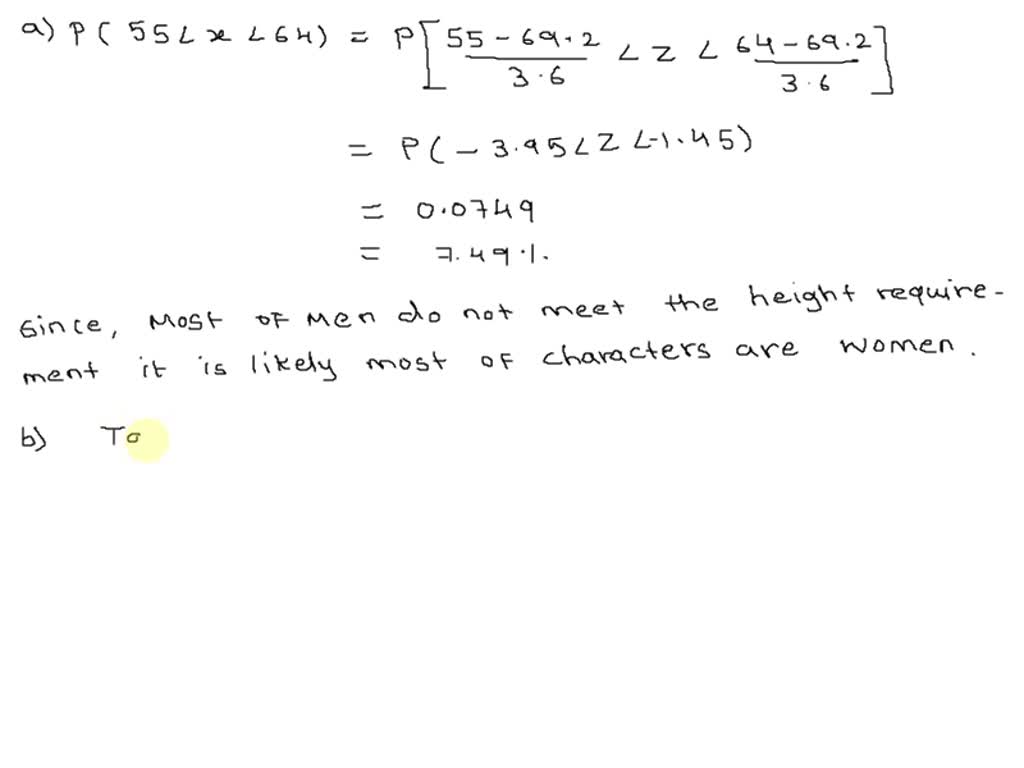 a) P( 55 < x < 64) = P[ 55 - 69.2 / 3.6 < z < 64 - 69.2 / 3.6 ]
= P( - 3.95 < Z < -1.45)
= 0.0749
= 7.49 %.
Since, Most of Men do not meet the height require-
ment it is likely most of characters are women.
b) To